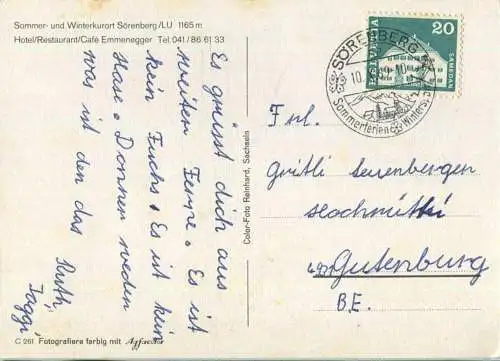 Sommer- und Winterkurort Sörenberg/LU 1165 m
Hotel/Restaurant/Café Emmenegger Tel. 041/86 61 33
Es grüsst dich aus
weiter Ferne. Es ist
kein Fuchs. Es ist kein
Hase. Donner
was ist den das
Ruth
Jäggi
C 261 Fotografiere farbig mit Agfacolor
Color-Foto Reinhard, Sachseln
HELVETIA
20
SAMEDAN
SÖRENBERG
Sommerferien
Frl.
Gritli
Gutenburg
B.E.